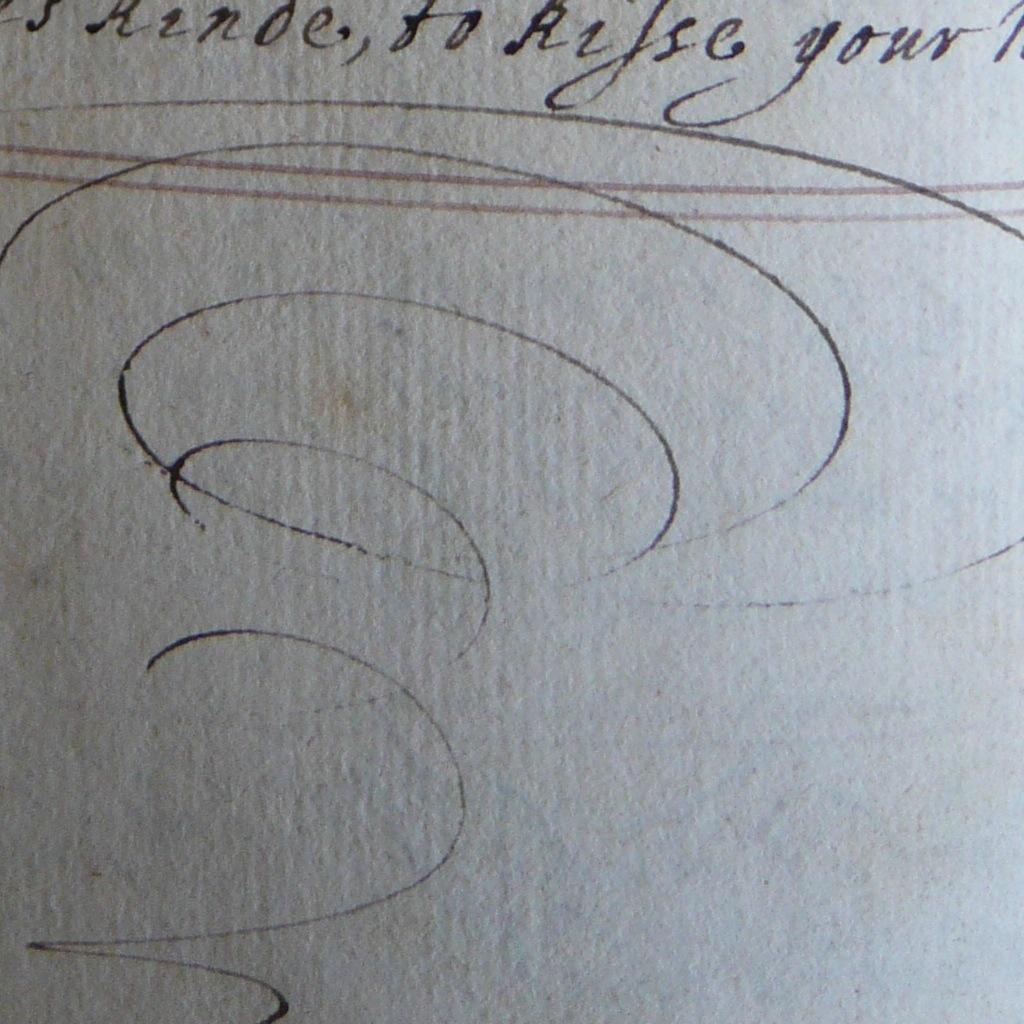 es kinde, to kisse your